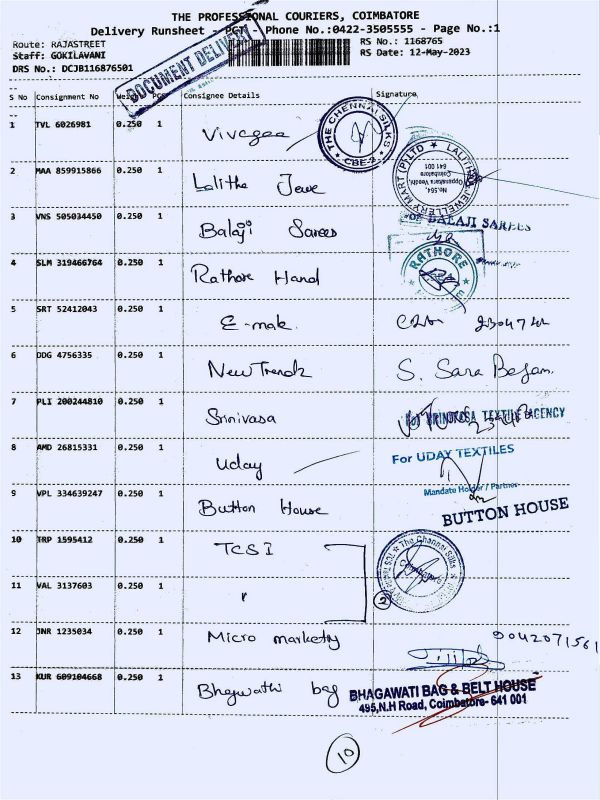 THE PROFESSIONAL COURIERS, COIMBATORE
Delivery Runsheet - PCT Phone No.:0422-3505555 - Page No.:1
Route: RAJASTREET RS No.: 1168765
Staff: GOKILAVANI RS Date: 12-May-2023
DRS No.: DCJB116876501
DOCUMENT DELIVERY
S No Consignment No Weight PCS Consignee Details Signature
1 TVL 6026981 0.250 1 Vivagaa THE CHENNAI SILKS CBE-2
2 MAA 859915866 0.250 1 Lalitha Jewe LALITHAA JEWELLERY MART (P) LTD No.564, Oppanakara Veedhi Coimbatore 641 001
3 VNS 505034450 0.250 1 Balaji Sarees For BALAJI SAREES
4 SLM 319466764 0.250 1 Rathore Hand RATHORE
5 SRT 52412043 0.250 1 E-mak
6 DDG 4756335 0.250 1 New Trendz S. Sara Begam.
7 PLI 200244810 0.250 1 Srinivasa For SRINIVASA TEXTILE AGENCY
8 AMD 26815331 0.250 1 Uday For UDAY TEXTILES
Mandate Holder / Partner
9 VPL 334639247 0.250 1 Button House BUTTON HOUSE
10 TRP 1595412 0.250 1 TCSI The Chennai Silks
11 VAL 3137603 0.250 1 " 2
12 JNR 1235034 0.250 1 Micro marketing 9042071561
13 KUR 609104668 0.250 1 Bhagwathi bag BHAGAWATI BAG & BELT HOUSE
495,N.H Road, Coimbatore- 641 001
10